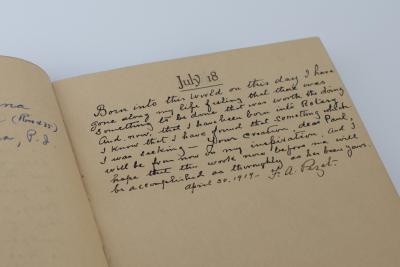 na
(Rowan)
a, P.I
July 18
Born into this world on this day I have
gone along my life feeling that there was
something to be done that was worth the doing
And now, that I have been born into Rotary
I know that I have found that something which
I was seeking — Your creation, dear Paul,
will be from now on my inspiration, and I
hope that the work now before me will
be accomplished as thoroughly as has been yours.
April 30, 1919 – F. A.